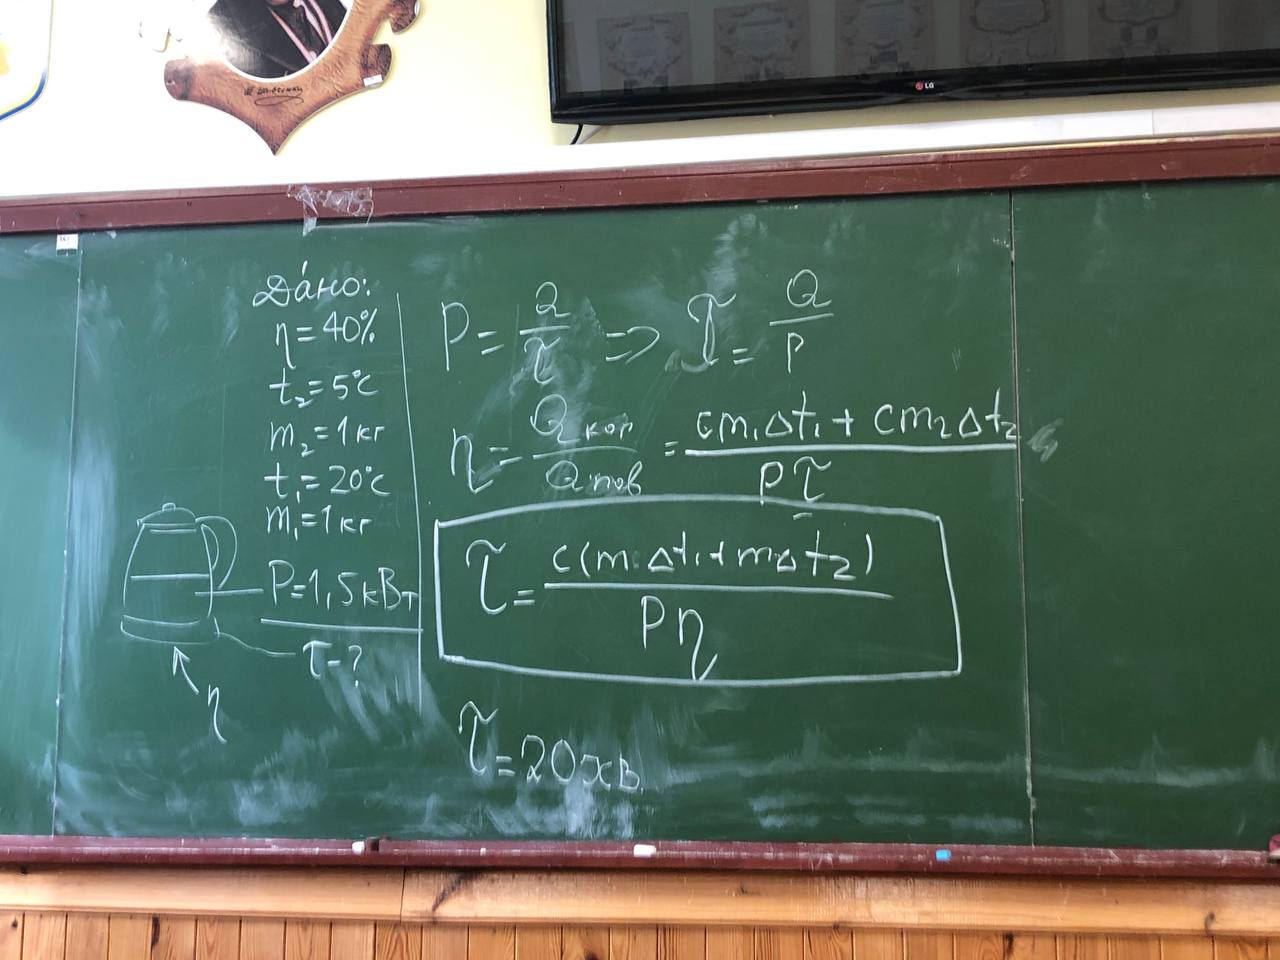 LG
Дано:
η = 40%
t₂ = 5°c
m₂ = 1 кг
t₁ = 20°c
m₁ = 1 кг
P = 1,5 кВт
τ - ?
η
P = Q/τ => τ = Q/P
η = Qкор/Qпов = (cm₁Δt₁ + cm₂Δt₂)/(Pτ)
τ = c(m₁Δt₁ + mΔt₂)/(Pη)
τ = 20 хв